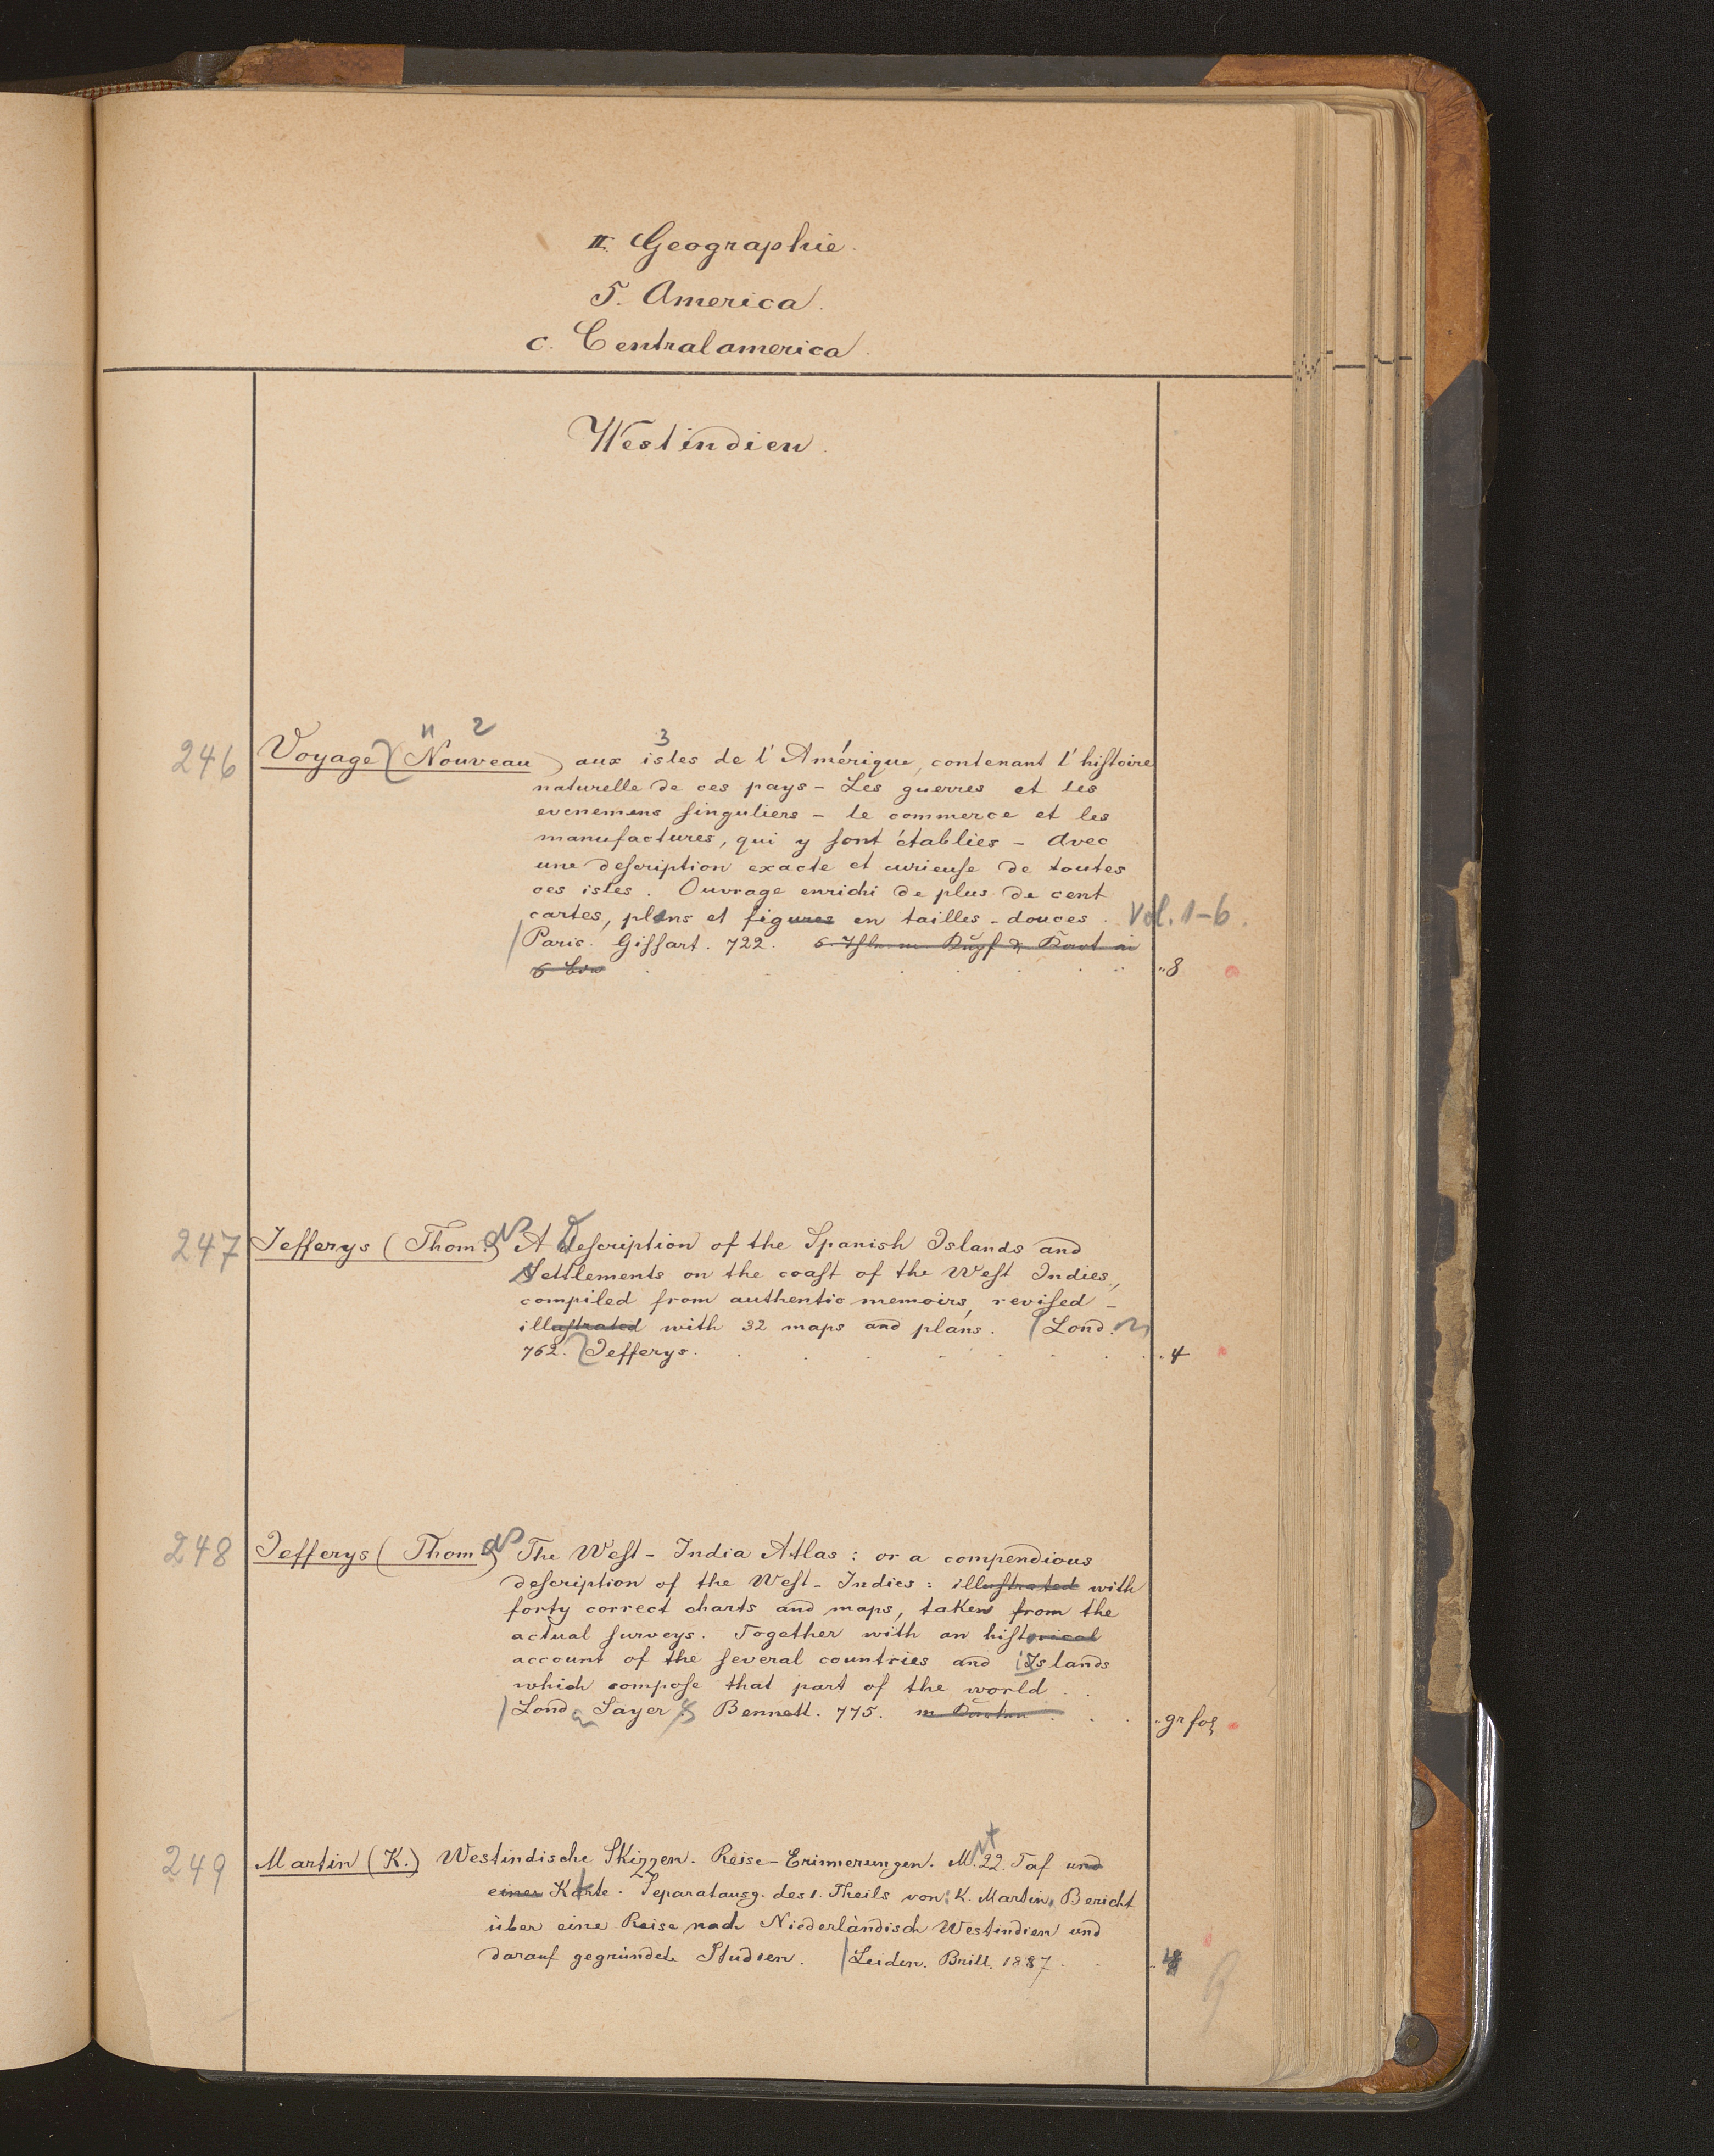 II. Geographie.
5. America.
c. Centralamerica.
Westindien.
n 2 3
246 Voyage (Nouveau) aux isles de l'Amérique, contenant l'hiſtoire
naturelle de ces pays - Les guerres et les
evenemens ſinguliers - le commerce et les
manufactures, qui y ſont établies - Avec
une deſcription exacte et curieuſe de toutes
ces isles. Ouvrage enrichi de plus de cent
cartes, plans et figures en tailles-douces. Vol. 1-6.
Paris. Giffart. 722. 6 in
6 8
247 Jefferys (Thomas) A Deſcription of the Spanish Islands and
Settlements on the coaſt of the Weſt Indies,
compiled from authentic memoirs, reviſed -
illuſtrated with 32 maps and plans. Lond.
762. Jefferys. 4
248 Jefferys (Thomas) The Weſt-India Atlas: or a compendious
deſcription of the Weſt-Indies: illuſtrated with
forty correct charts and maps, taken from the
actual ſurveys. Together with an hiſtorical
account of the ſeveral countries and Islands
which compoſe that part of the world
Lond Sayer & Bennett. 775. gr fol
249 Martin (K.) Westindische Skizzen. Reise-Erinnerungen. Mt 22 Taf und
einer Karte. Separatausg. des 1. Theils von: K. Martin, Bericht
über eine Reise nach Niederländisch Westindien und
darauf gegründete Studien. Leiden. Brill. 1887.